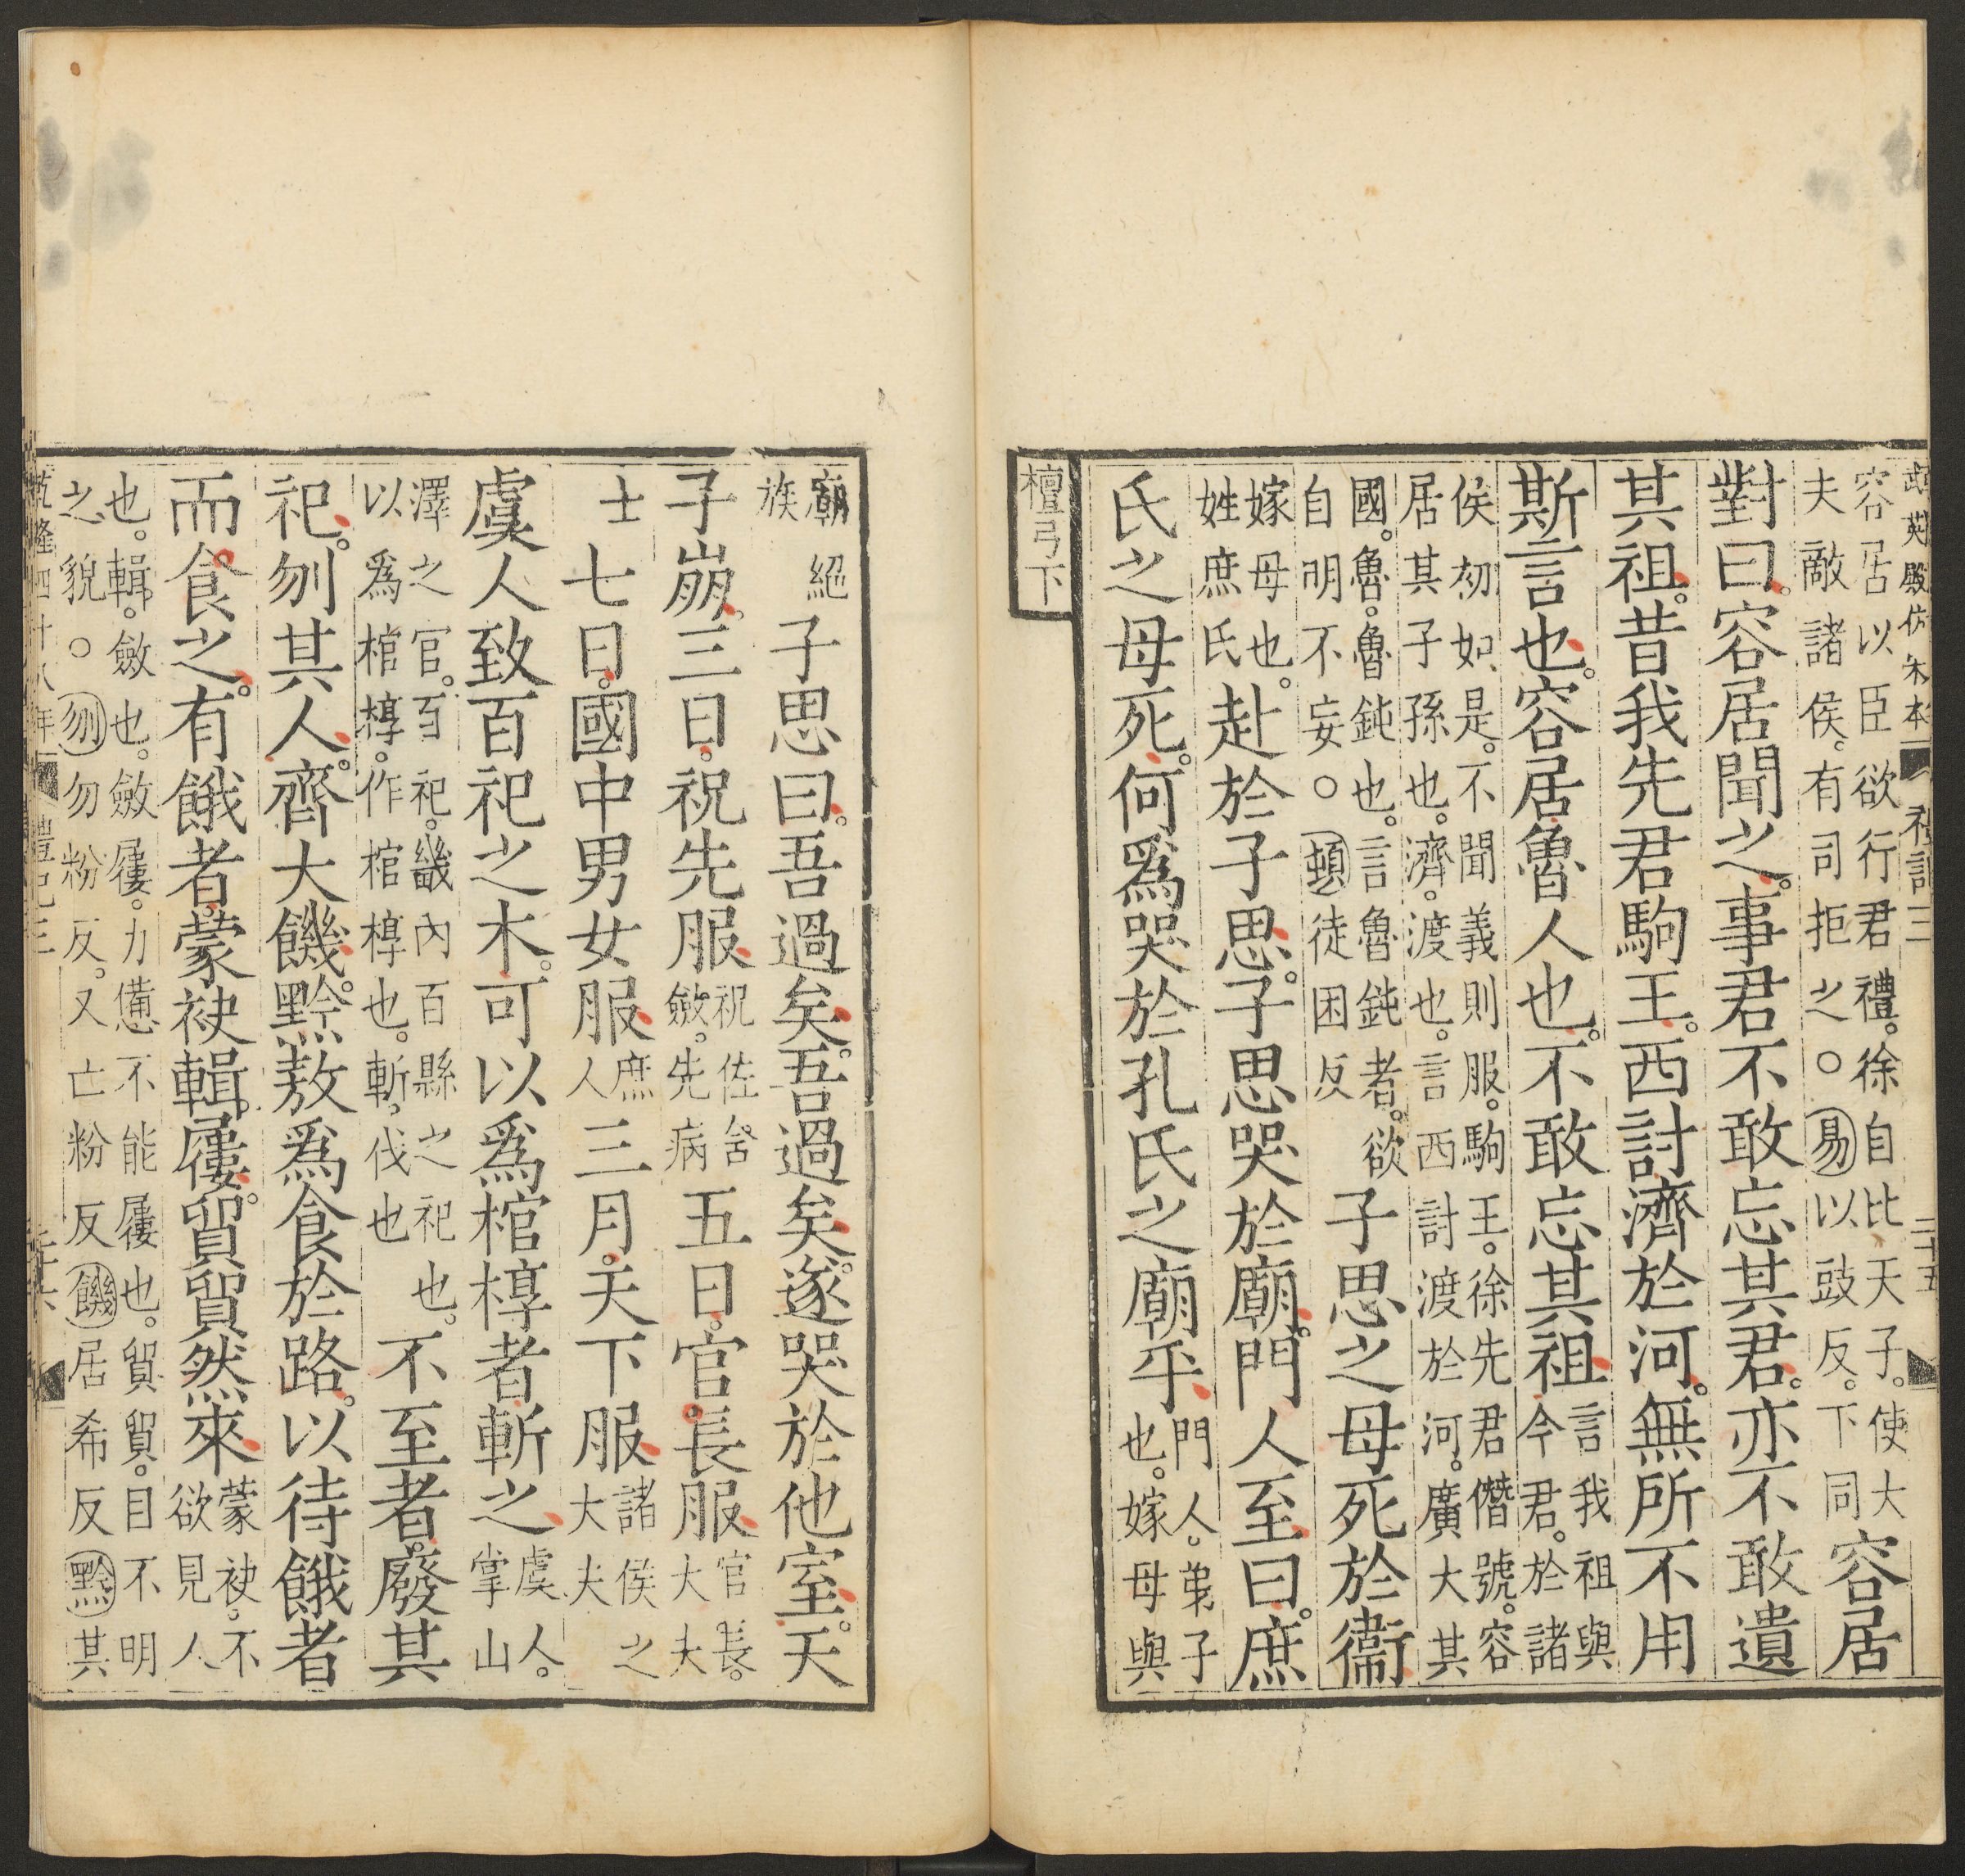 武英殿仿宋本 禮記三 二十五
容居以臣欲行君禮。徐自比天子。使大
夫敵諸侯。有司拒之○易以豉反。下同
容居
對曰。容居聞之。事君不敢忘其君。亦不敢遺
其祖。昔我先君駒王。西討濟於河。無所不用
斯言也。容居魯人也。不敢忘其祖
言我祖與
今君。於諸
侯初如是。不聞義則服。駒王。徐先君僭號。容
居其子孫也。濟。渡也。言西討渡於河。廣大其
國。魯。魯鈍也。言魯鈍者。欲
自明不妄○頓徒困反
子思之母死於衞
赴於子思。子思哭於廟。門人至曰。庶
嫁母也。
姓庶氏
氏之母死。何爲哭於孔氏之廟乎
門人。弟子
也。嫁母與
檀弓下
廟絕
族
子思曰。吾過矣。吾過矣。遂哭於他室。天
子崩。三日。祝先服
祝佐含
斂。先病
五日。官長服
官長。
大夫
士
七日。國中男女服
庶
人
三月。天下服
諸侯之
大夫
虞人致百祀之木。可以爲棺椁者斬之
虞人。
掌山
澤之官。百祀。畿內百縣之祀也。
以爲棺椁。作棺椁也。斬。伐也
不至者。廢其
祀。刎其人。齊大饑。黔敖爲食於路。以待餓者
而食之。有餓者。蒙袂輯屨。貿貿然來
蒙袂。不
欲見人
也。輯。斂也。斂屨。力憊不能屨也。貿貿。目不明
之貌○刎勿粉反。又亡粉反饑居希反黔其
乾隆四十八年 禮記三 二十六